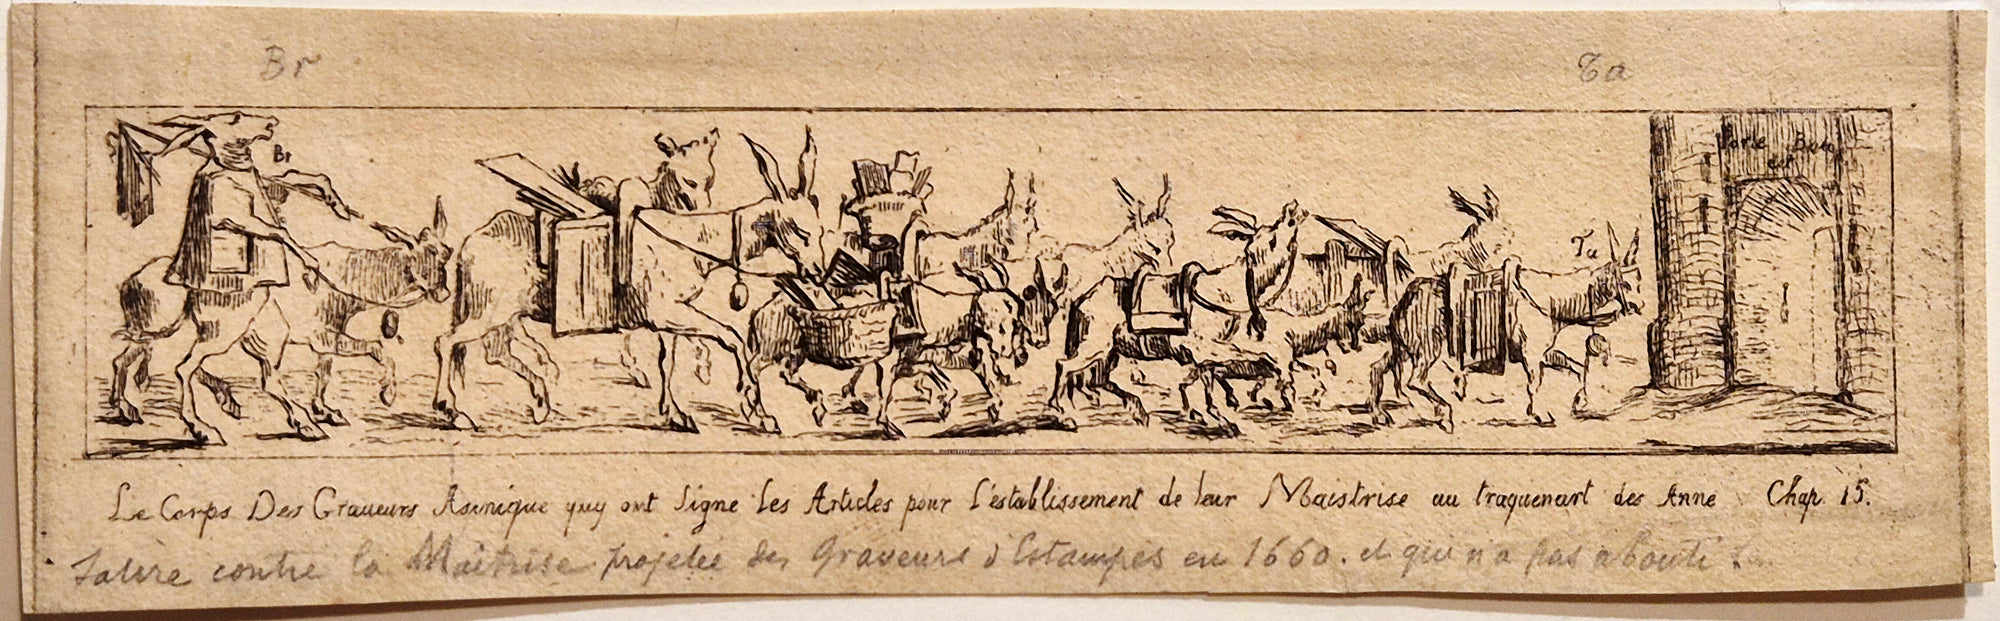 Br
Ta
Br
Ta
Le Corps Des Graveurs Asinique quy ont Signe Les Articles pour L'establissement de leur Maistrise au traquenart des Anne Chap. 15.
Satire contre la Maîtrise projetée des Graveurs d'Estampes en 1660. et qui n'a pas abouti